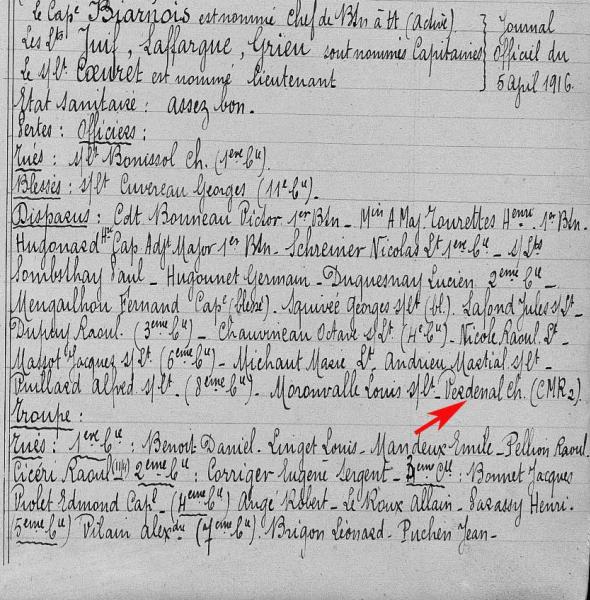 Le Cape Bjarnois est nommé Chef de Btn à tt (active)
Les Lts Juif, Laffargue, Grieu sont nommés Capitaines
Le s/Lt Cœuret est nommé Lieutenant
Journal
Officiel du
5 April 1916.
Etat Sanitaire : assez bon.
Pertes : Officiers :
Tués : s/Lt Bonissol Ch. (1ere Cie).
Blessés : s/Lt Cuvereau Georges (11e Cie).
Disparus : Cdt Bonneau Victor 1er Btn - Min A Maj Tourettes Henri 1er Btn.
Hugonard Cap. Adjt Major 1er Btn - Schreiner Nicolas Lt 1ere Cie - s/Lts
Sombsthay Paul - Hugounet Germain - Duquesnay Lucien 2eme Cie -
Mengailhou Fernand Cape (blessé). Squiveé Georges s/Lt (bl). Lafond Jules s/Lt -
Dupuy Raoul. (3eme Cie) - Chauvineau Octave s/Lt (4e Cie) - Nicole Raoul Lt -
Massot Jacques s/Lt (6eme Cie) - Michaut Marie Lt Andrieu Martial s/Lt -
Puillard Alfred s/Lt. (8eme Cie) - Moronvalle Louis s/Lt - Verdenal Ch. (CMR2).
Troupe :
Tués : 1ere Cie : Benoit Daniel - Linget Louis - Mandeux Emile - Pellion Raoul.
Cicéri Raoul 2eme Cie : Corriger Eugène Sergent - 3eme Cie : Bonnet Jacques
Piolet Edmond Capl - (4eme Cie) Angé Robert - Le Roux Allain - Parassy Henri.
5eme Cie) Vilain Alexdre (7eme Cie). Brigon Léonard - Puchen Jean -